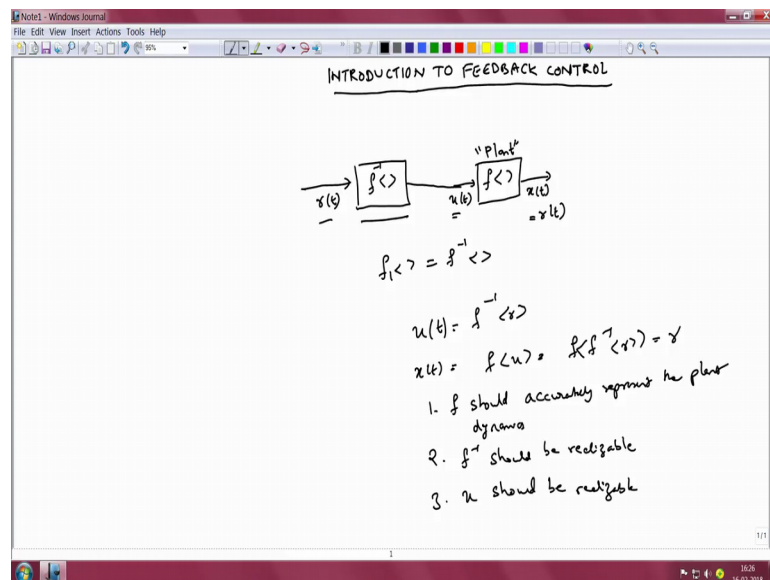 Note1 - Windows Journal
File Edit View Insert Actions Tools Help
95%
INTRODUCTION TO FEEDBACK CONTROL
"Plant"
f⁻¹< >
f< >
r(t)
u(t)
x(t)
= r(t)
f₁< > = f⁻¹< >
u(t) = f⁻¹<r>
x(t) = f<u> = f<f⁻¹<r>> = r
1. f should accurately represent the plant
dynamics
2. f⁻¹ should be realizable
3. u should be realizable
1/1
1
16:26
16-02-2018